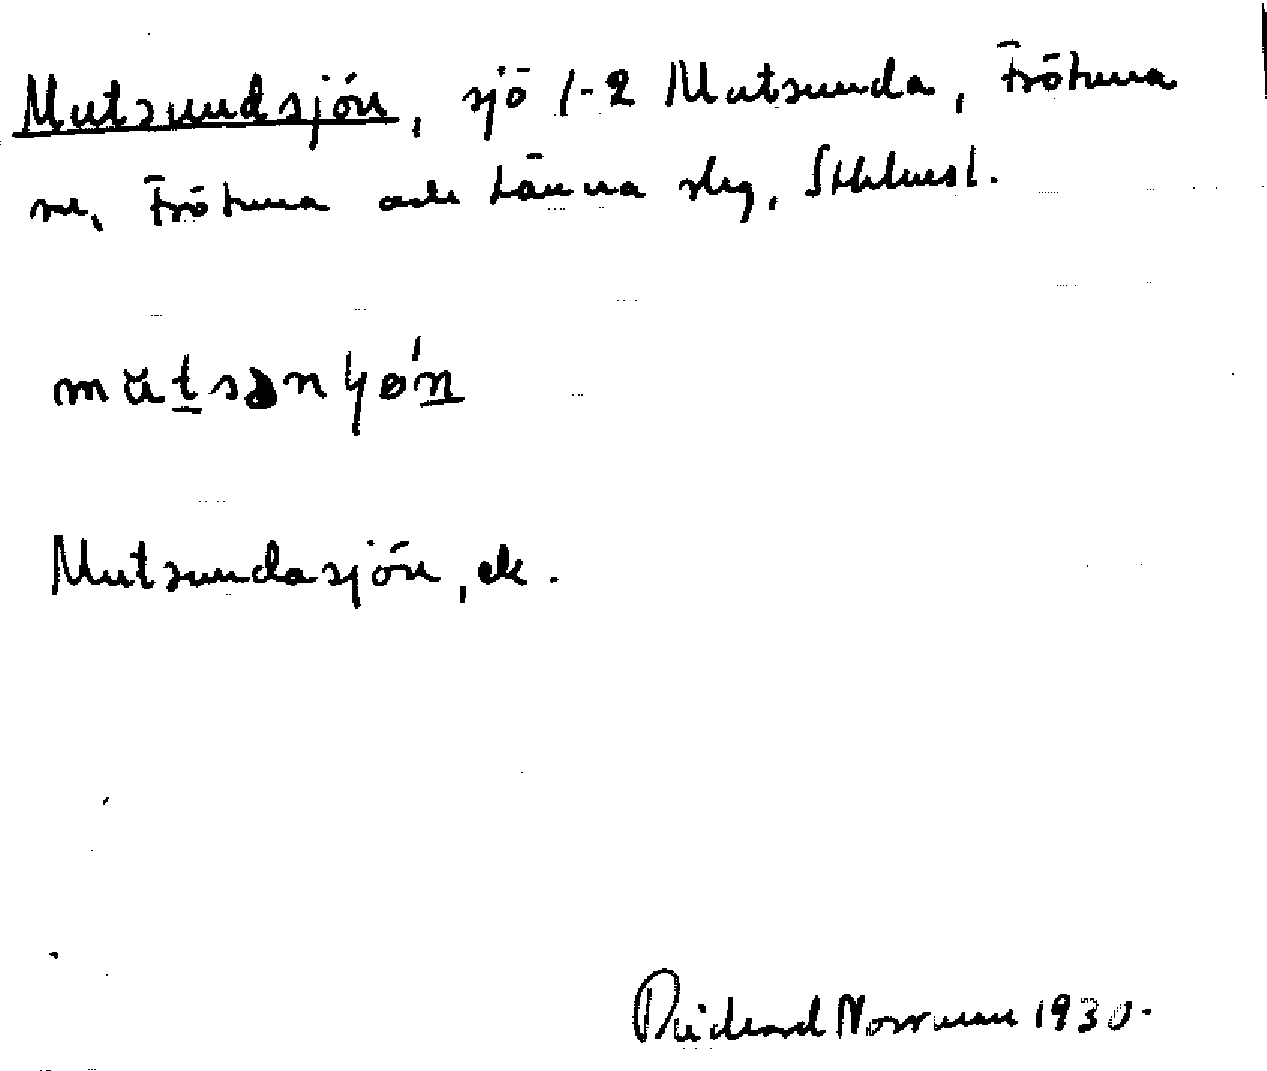 Mutsundsjön, sjö 1-2 Mutsunda, Frötuna
sn, Frötuna och Länna slg, Sthlmsl.
mutsənɥøń
Mutsundasjön, ek.
Richard Norrman 1930.